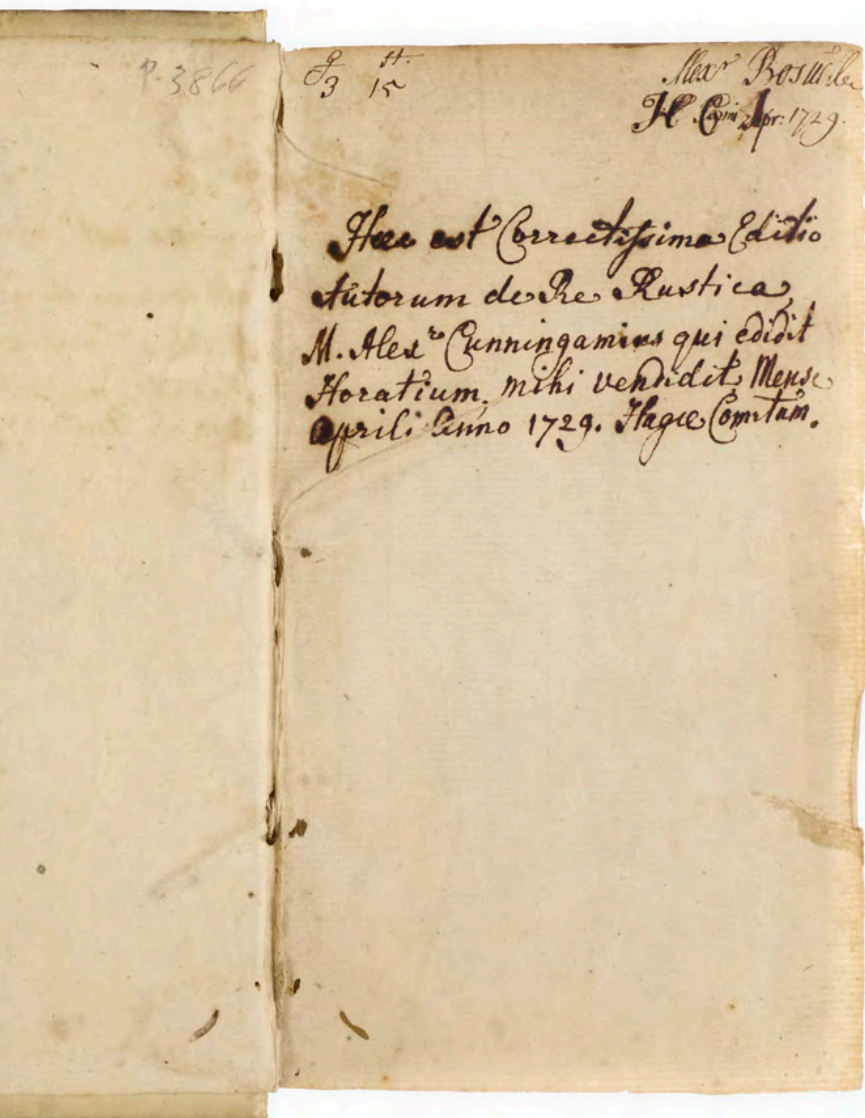 P. 3866
g st.
3 15
Alexr Boswel
H. Com: Apr: 1729.
Haec est Correctissima Editio
Autorum de Re Rustica,
M. Alexr Cunningamius qui edidit
Horatium, mihi vendidit, Mense
Aprili Anno 1729. Hagae Comitum.